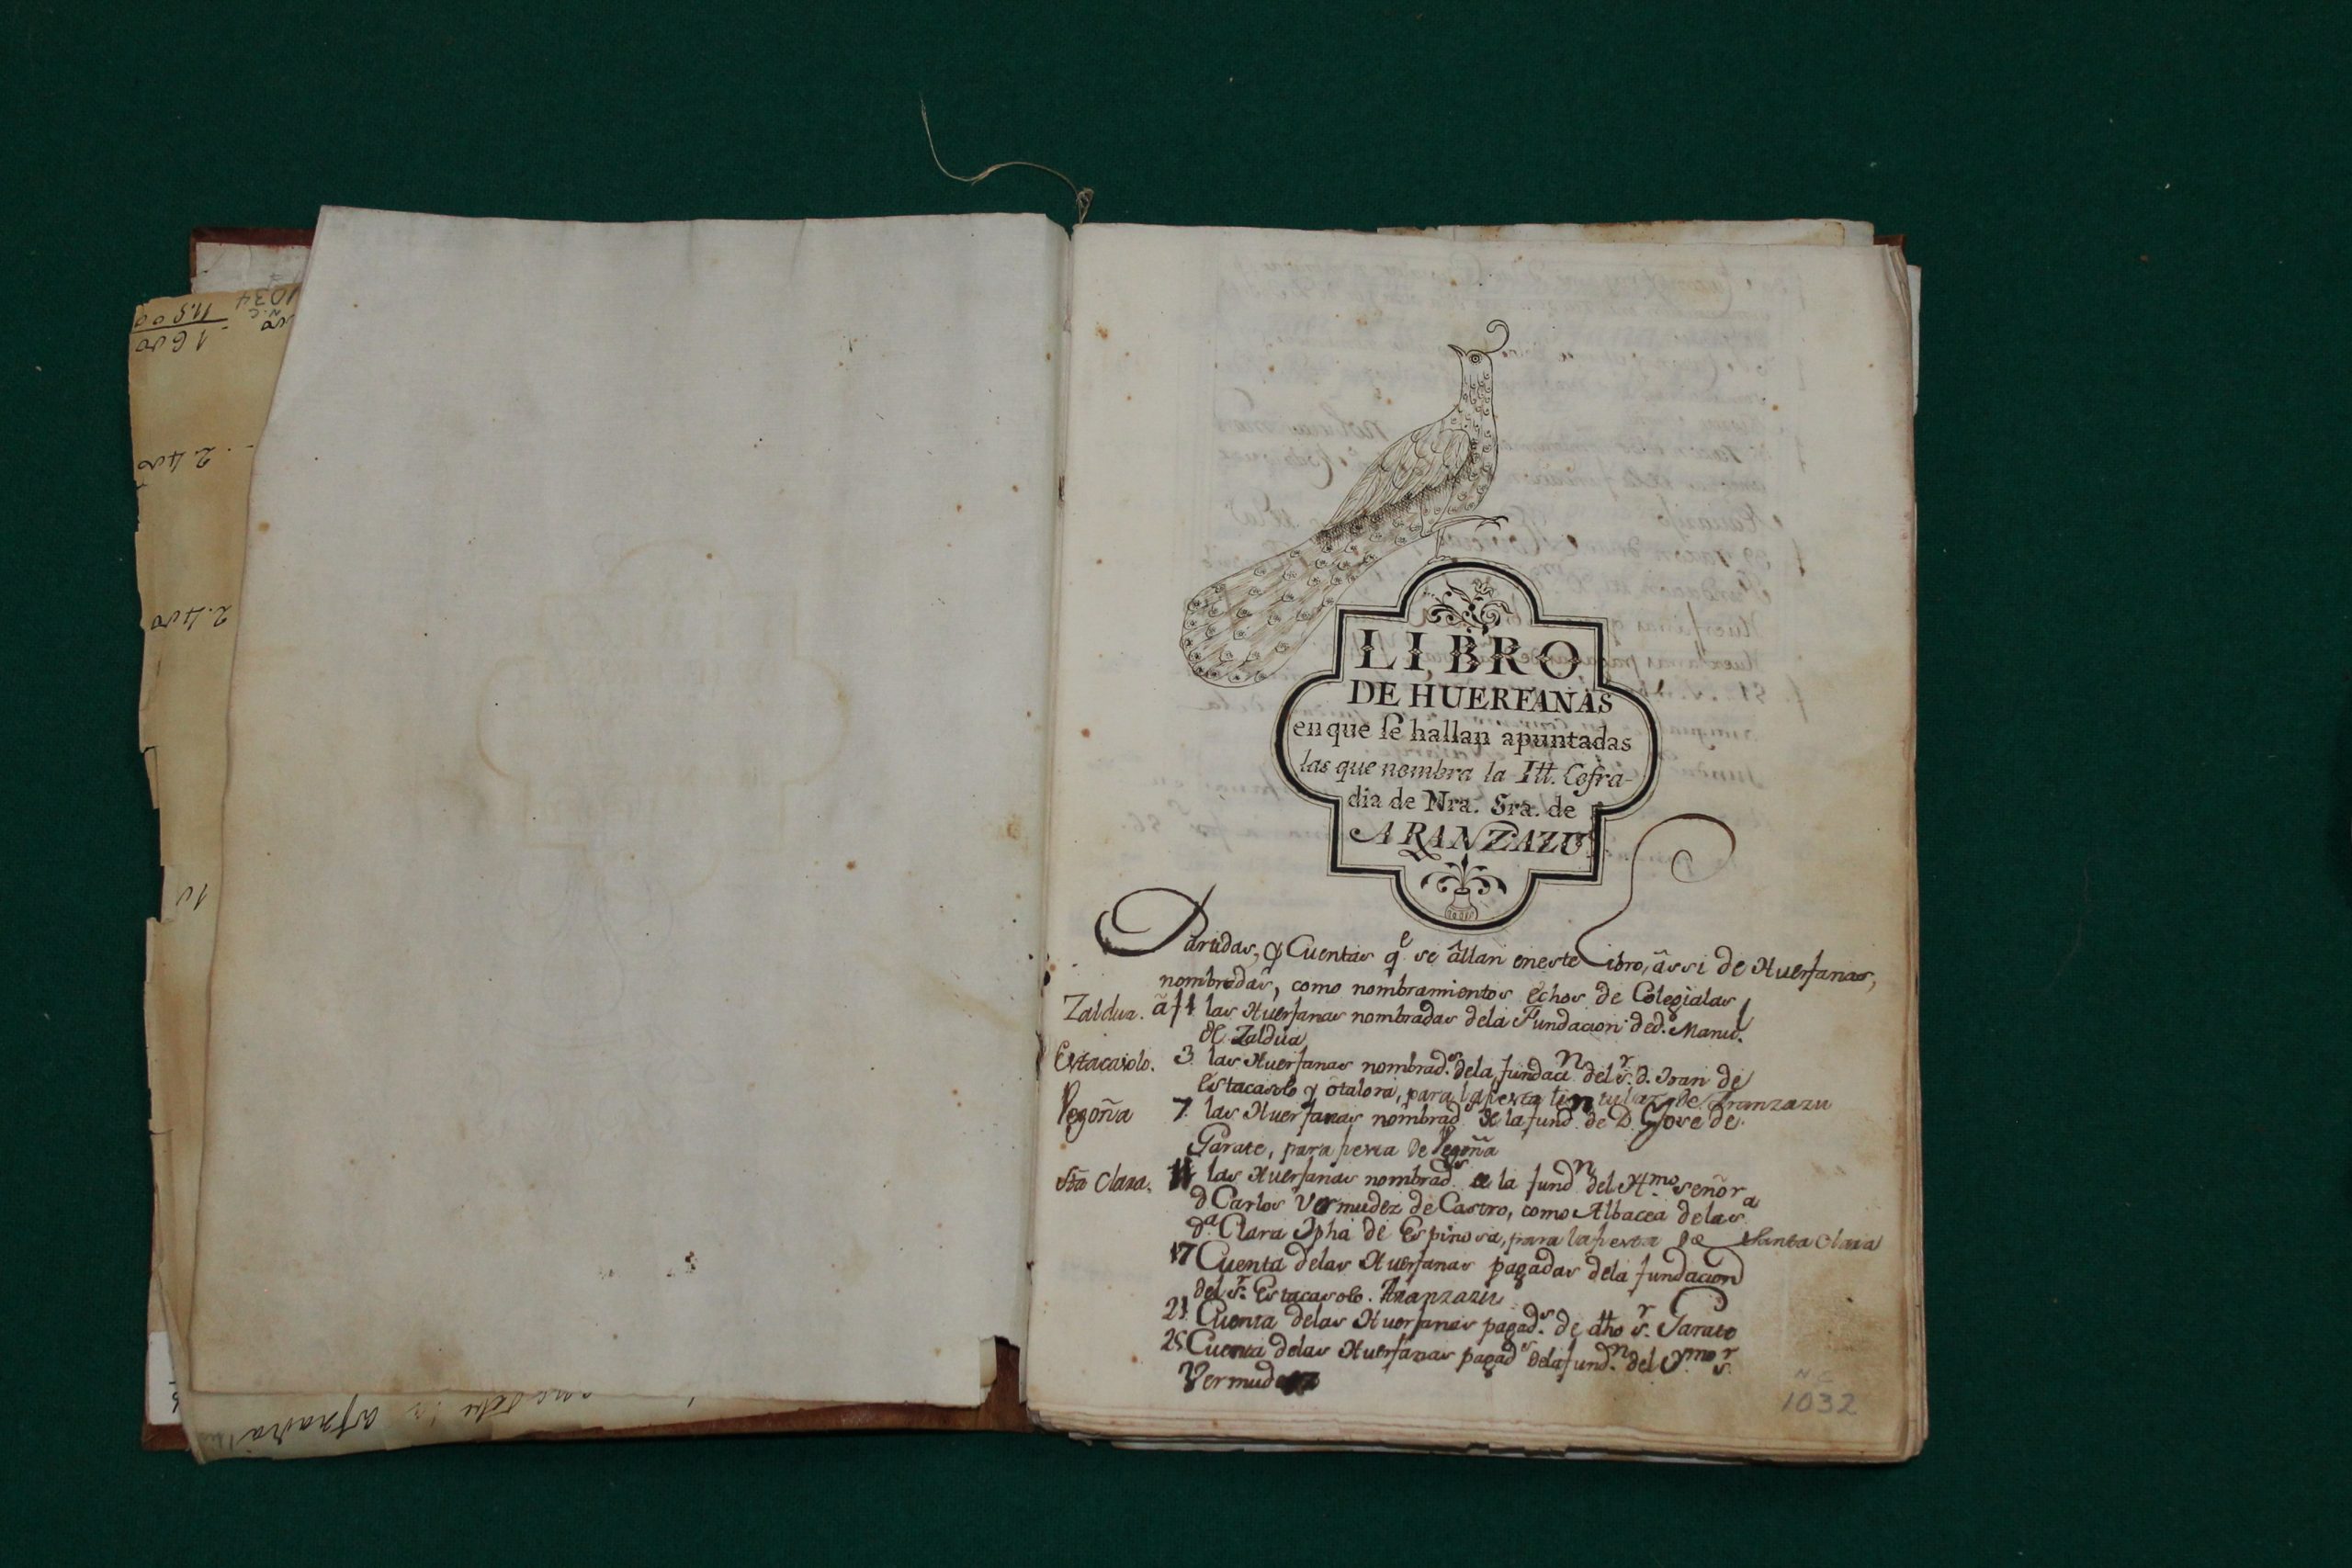 LIBRO
DE HUERFANAS
en que ſe hallan apuntadas
las que nombra la Itt. Cofra-
dia de Nra. Sra. de
ARANZAZU
Partidas, y Cuentas q.e se âllan eneste Libro, âssi de Huerfanas,
nombradas, como nombramientos êchos de Colegialas
Zaldua. â f 1 las Huerfanas nombradas dela Fundacion de d. Manu.l
de Zaldua
Estacasolo. 3 las Huerfanas nombrad.s dela fundaci.n del s.r d. Joan de
Estacasolo y ôtalora, para la fiesta titular de Aranzazu
Vegoña 7. las Huerfanas nombrad.s de la fund. de D. Jose de
Garate, para fiesta de Vegoña
Sta Clara. 11 las Huerfanas nombrad.s de la fund.n del Ill.mo señor
d Carlos Vermudez de Castro, como Albacea delas.a
d.a Clara Jpha de Espinosa, para la fiesta de Santa Clara
17 Cuenta delas Huerfanas pagadas dela fundacion
del s.r Estacasolo. Aranzazu
21 Cuenta delas Huerfanas pagad.s de dho s.r Garate
25 Cuenta delas Huerfanas pagad.s dela fund.n del Y.mo s.r
Vermudez
N C
1032
1034
N.C
11.900
1600
2.400
2.400
10